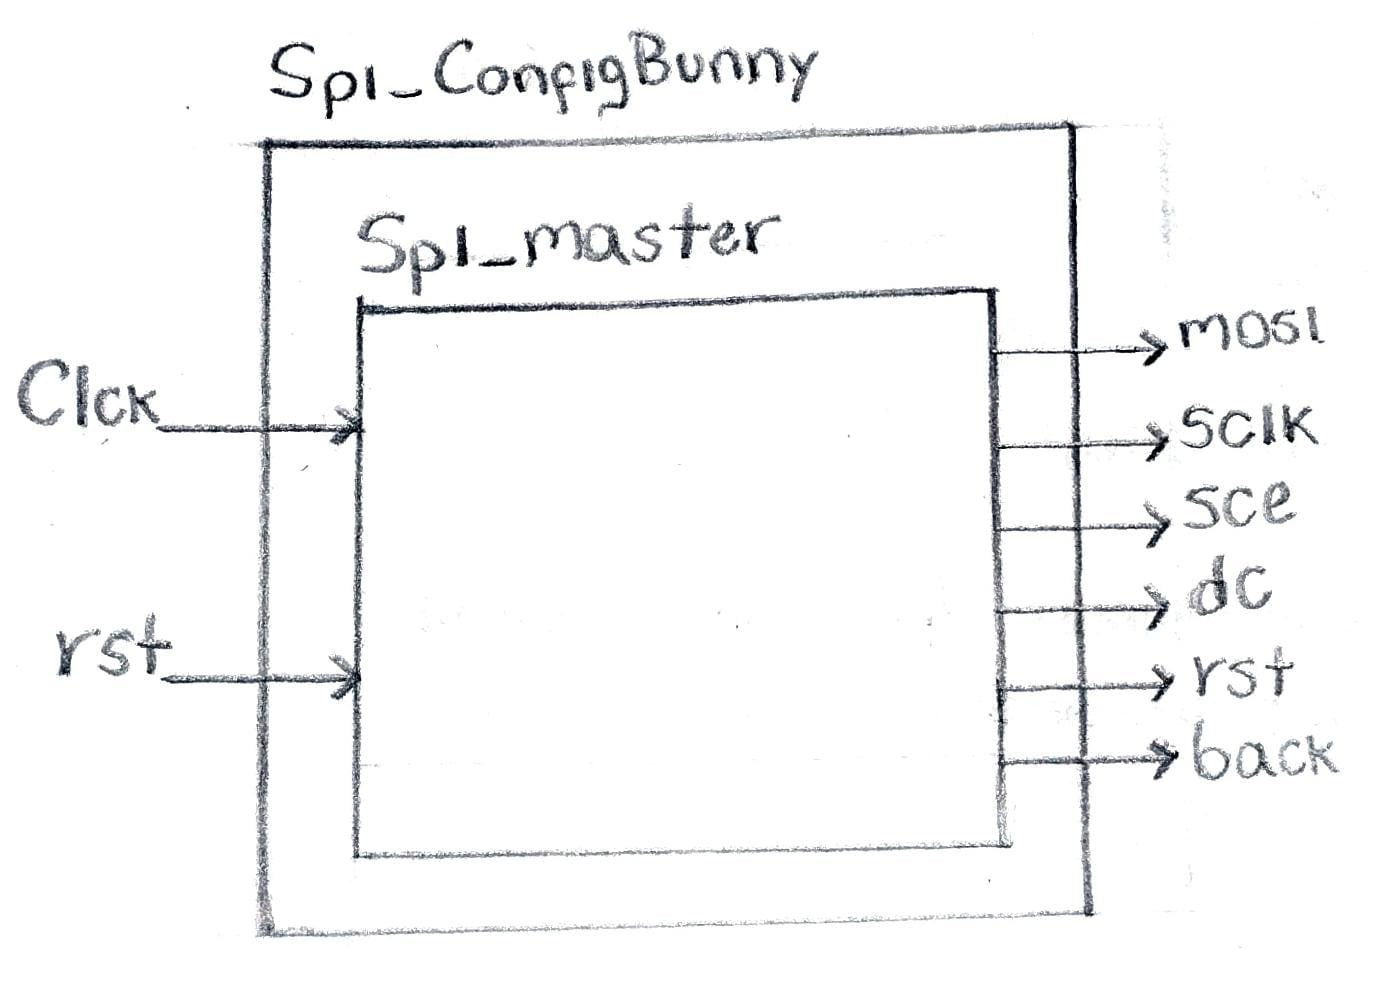 Spi_ConfigBunny
Spi_master
Clck
rst
mosi
sclk
sce
dc
rst
back